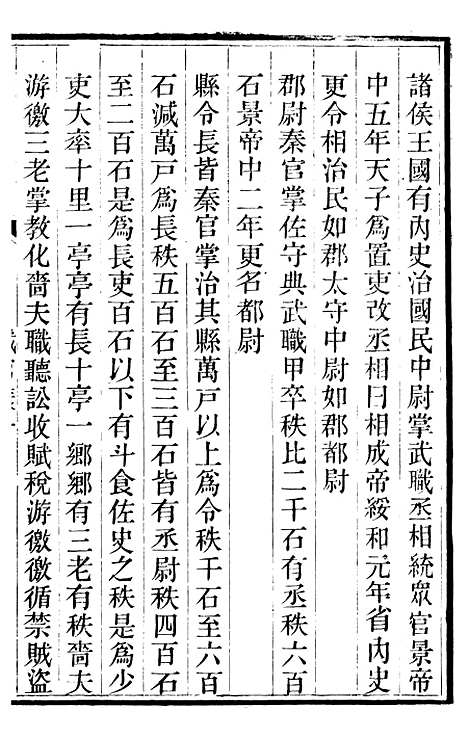 諸侯王國有內史治國民中尉掌武職丞相統眾官景帝
中五年天子爲置吏改丞相曰相成帝綏和元年省內史
更令相治民如郡太守中尉如郡都尉
郡尉秦官掌佐守典武職甲卒秩比二千石有丞秩六百
石景帝中二年更名都尉
縣令長皆秦官掌治其縣萬戸以上爲令秩千石至六百
石減萬戸爲長秩五百石至三百石皆有丞尉秩四百石
至二百石是爲長吏百石以下有斗食佐史之秩是爲少
吏大率十里一亭亭有長十亭一鄉鄉有三老有秩嗇夫
游徼三老掌教化嗇夫職聽訟收賦稅游徼徼循禁賊盜